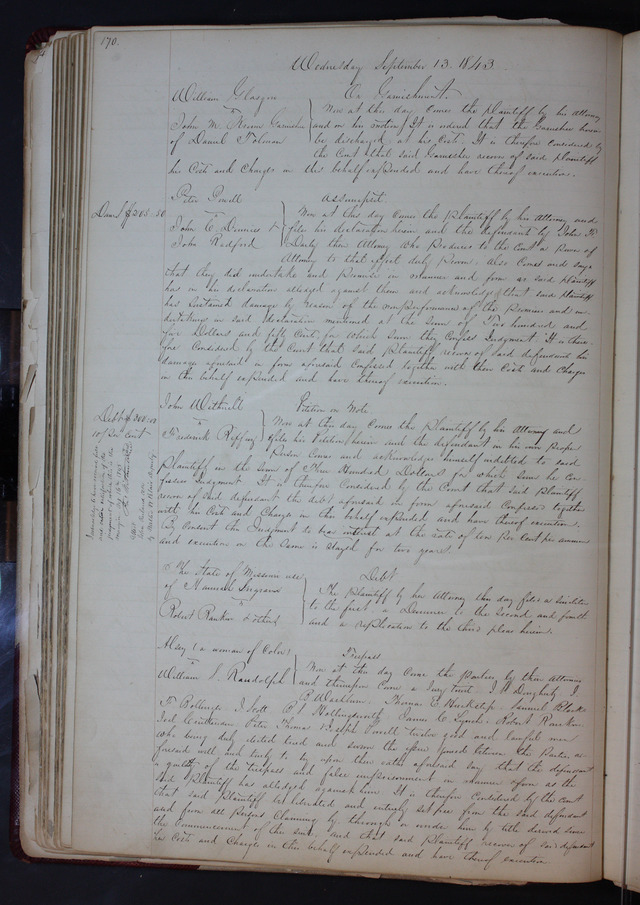 170.
Wednesday September 13. 1843.
William Glasgow
On Garnishment.
John M. Krum Garnishee
of Daniel Tolman
Now at this day comes the plaintiff by his Attorney
and on his motion It is ordered that the Garnishee herein
be discharged at his Cost. It is therefore Considered by
the Court that said Garnishee recover of said plaintiff
his Costs and Charges in this behalf expended and have thereof execution.
Peter Powell
Assumpsit.
Dam $205.50
John C. Dennies &
John Radford
Now at this day comes the plaintiff by his Attorney and
files his declaration herein and the defendant by John R.
their Attorney who produces to the Court a power of
Attorney to that effect duly proven. also Comes and says
that they did undertake and promise in manner and form as said plaintiff
has in his declaration alleged against them and acknowledges that said plaintiff
has sustained damage by reason of the nonperformance of the promises and un-
dertakings in said declaration mentioned at the sum of Two hundred and
five Dollars and fifty Cents for which sum they Confess Judgment. It is there-
fore Considered by the Court that said plaintiff recover of said defendants his
damages aforesaid in form aforesaid Confessed together with their Costs and Charges
in this behalf expended and have thereof execution.
John Withnell
Petition on Note
Debt $300.00
10 per Cent
Frederick
Now at this day comes the plaintiff by his Attorney and
files his Petition herein and the defendant in his own proper
Person Comes and acknowledges himself indebted to said
Plaintiff in the sum of Three Hundred Dollars for which sum he con-
fesses Judgment. It is therefore Considered by the Court that said plaintiff
recover of said defendant the debt aforesaid in form aforesaid Confessed together
with his Costs and Charges in this behalf expended and have thereof execution.
By Consent this Judgment to bear interest at the rate of ten per Cent per annum
and execution in the Cause is stayed for two years.
The State of Missouri use
of Hannah
Debt
Robert Rankin & others
The Plaintiff by her Attorney this day files a Similiter
to the first a Demurrer to the second and fourth
and a replication to the third pleas herein.
Mary (a woman of Color)
Trespass
William S. Randolph
Now at this day Come the parties by their Attornies
and thereupon Came a Jury towit J. W. Dougherty J.
B. Washburn, Thomas C. Samuel Blacks
F. Bollinger J. Scott B. S. Hollingsworth James C. Lynch, Robert Rankin
Joel Crittenden Peter Thomas & Joseph Powell twelve good and lawful men
who being duly elected tried and sworn the issue Joined between the Parties a-
foresaid well and truly to try upon their oaths aforesaid say that the defendant
is guilty of the trespass and false imprisonment in manner & form as the
said plaintiff has alledged against him It is therefore Considered by the Court
that said plaintiff be liberated and entirely set free from the said defendant
and from all persons Claiming by through or under him by title derived since
the Commencement of this suit. and that said plaintiff recover of said defendant
her Costs and Charges in this behalf expended and have thereof execution